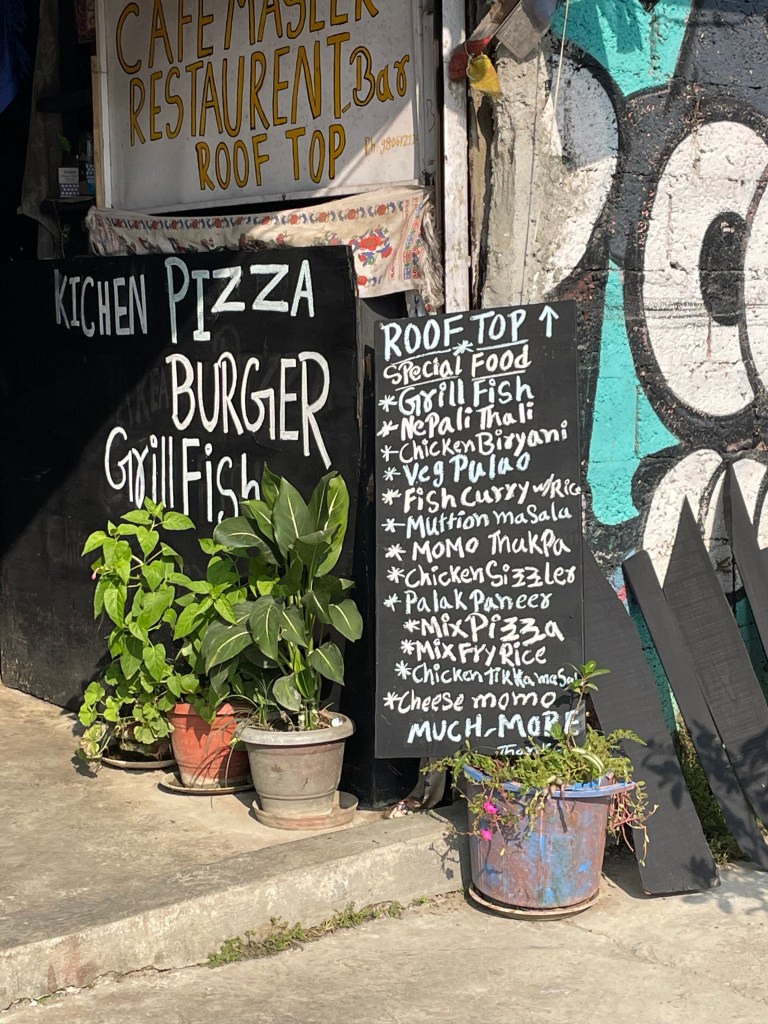 CAFE MASLEK
RESTAURENT Bar
ROOF TOP
KICHEN PIZZA
BURGER
Grill Fish
ROOF TOP ↑
Special Food
*Grill Fish
*Nepali Thali
*Chicken Biryani
*Veg Pulao
*Fish Curry w/Rice
*Muttion masala
*MOMO ThukPa
*Chicken Sizzler
*Palak Paneer
*Mix Pizza
*Mix Fry Rice
*Chicken tikka masal
*Cheese momo
MUCH-MORE